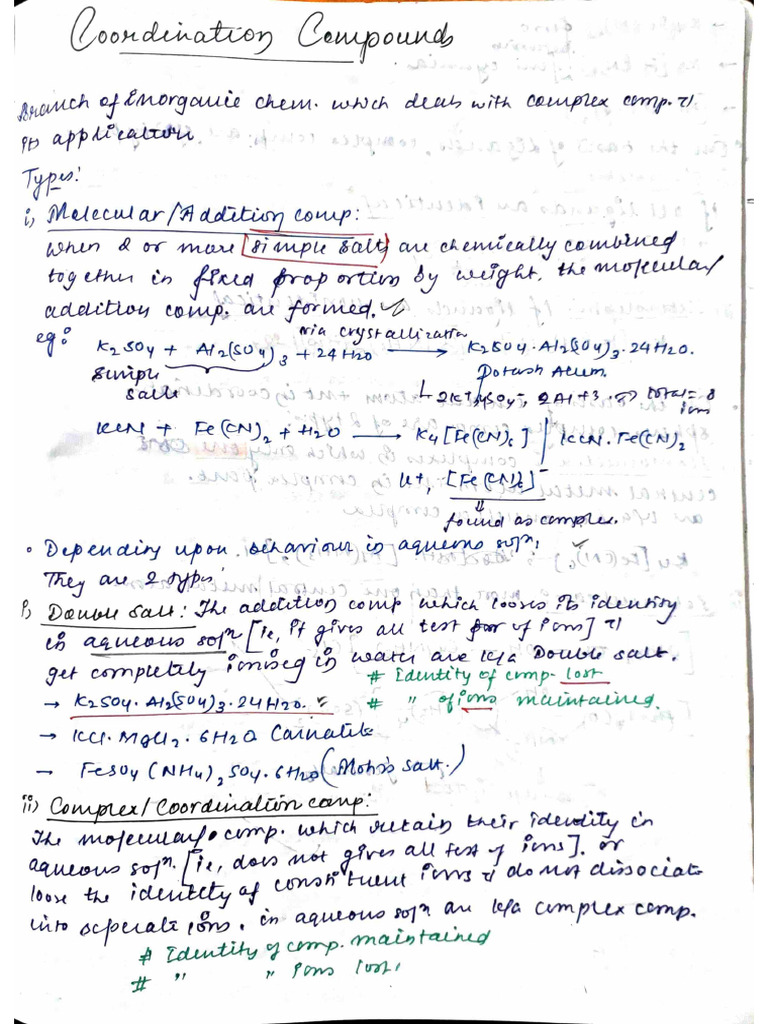 Coordination Compounds
Branch of Inorganic chem. which deals with complex comp. &
its application
Types:
i, Molecular/Addition comp:
When 2 or more simple salts are chemically combined
together in fixed proportion by weight, the molecular/
addition comp. are formed.
eg: K2SO4 + Al2(SO4)3 + 24H2O → K2SO4.Al2(SO4)3.24H2O.
via crystallization
simple
salts
Potash Alum.
2K+, 4SO4-, 2Al+3 ⇒ total = 8
ions
KCN + Fe(CN)2 + H2O → K4[Fe(CN)6] / KCN.Fe(CN)2
K+, [Fe(CN)6]-
⇓
found as complex.
• Depending upon behaviour in aqueous sol^n,
They are 2 types:
i) Double Salt: The addition comp which looses its identity
in aqueous sol^n [ie, it gives all test of ions] &
get completely ionised in water are k/a Double salt.
# Identity of comp. lost
→ K2SO4.Al2(SO4)3.24H2O.
# " of ions maintained.
→ KCl.MgCl2.6H2O Carnalite
→ FeSO4(NH4)2SO4.6H2O (Mohr's Salt.)
ii) Complex/Coordination comp:
The molecular comp. which retain their identity in
aqueous sol^n. [ie, does not gives all test of ions]. or
loose the identity of constituent ions & do not dissociate
into seperate ions. in aqueous sol^n are k/a complex comp.
# Identity of comp. maintained
# " " ions lost,